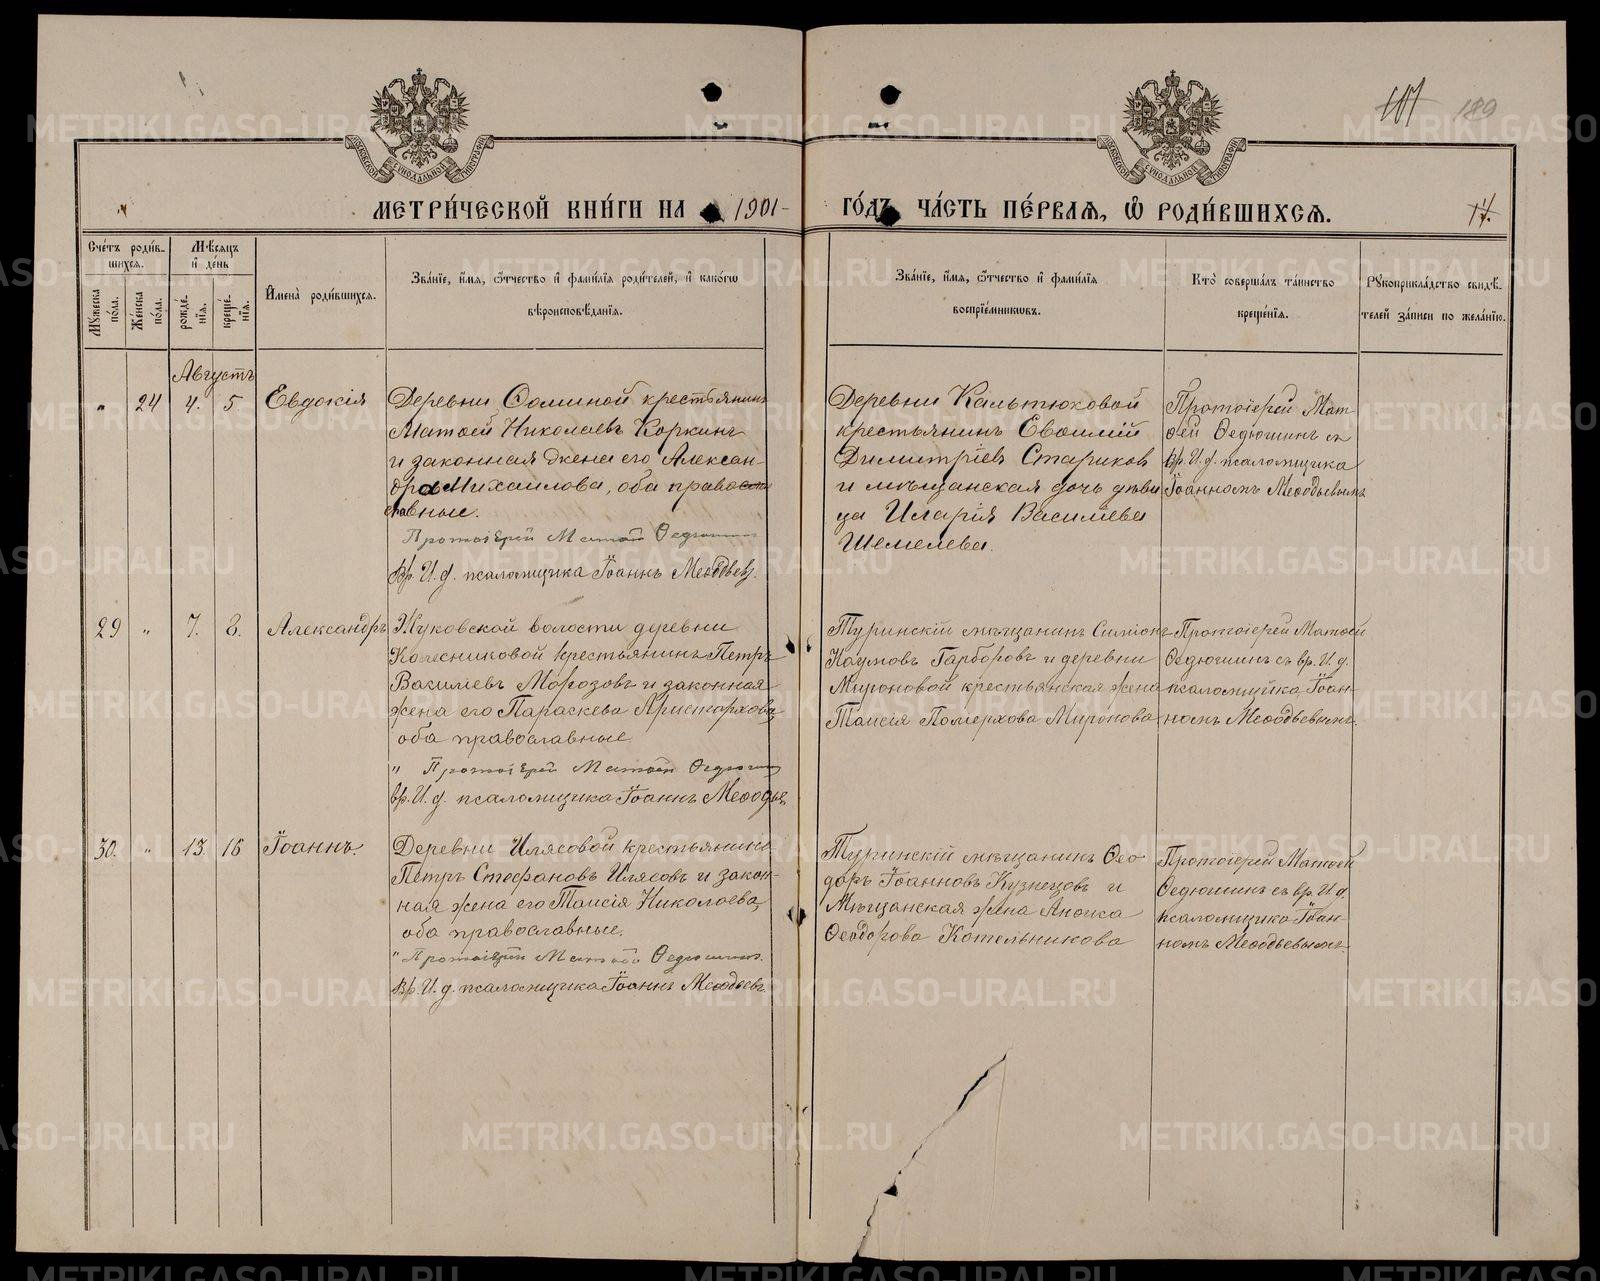 107 189
МЕТРИ́ЧЕСКОЙ КНИ́ГИ НА 1901 ГО́ДЪ ЧА́СТЬ ПЕ́РВАѦ, Ѡ҆ РОДИ́ВШИХСѦ.
17.
Сче́тъ роди́в-
шихсѧ.
Мѣ́сѧцъ
и҆ де́нь
Мꙋ́жеска
по́ла.
Же́нска
по́ла.
рожде́-
нїѧ.
креще́-
нїѧ.
И҆мена̀ роди́вшихсѧ.
Зва́нїе, и҆́мѧ, ѻ҆́тчество и҆ фами́лїѧ роди́телей, и҆ како́гѡ
вѣроисповѣ́данїѧ.
Зва́нїе, и҆́мѧ, ѻ҆́тчество и҆ фами́лїѧ
воспрїе́мникѡвъ.
Кто̀ соверша́лъ та́инство
креще́нїѧ.
Рꙋкоприкла́дство свидѣ́-
телей за́писи по жела́нїю.
Августъ
" 24 4. 5 Евдокія
Деревни Соминой крестьянинъ
Матѳей Николаевъ Коркинъ
и законная жена его Алексан-
дра Михаилова, оба право
славные.
Протоіерей Матѳей Ѳедюшинъ
Вр. И. д. псаломщика Іоаннъ Меѳодьевъ.
Деревни Калтюковой
крестьянинъ Евѳимій
Димитріевъ Стариковъ
и мѣщанская дочь дѣви
ца Иларія Василіева
Шемелева.
Протоіерей Мат-
ѳей Ѳедюшинъ съ
вр. И. д. псаломщика
Іоанномъ Меѳодьевымъ
29 " 7. 8. Александръ
Жуковской волости деревни
Колесниковой крестьянинъ Петръ
Василіевъ Морозовъ и законная
жена его Параскева Аристархова,
оба православные.
" Протоіерей Матѳей Ѳедюшинъ
вр. И. д. псаломщика Іоаннъ Меѳодье
Туринскій мѣщанинъ Симіонъ
Наумовъ Гарборовъ и деревни
Мироновой крестьянская жена
Таисія Полиерхова Миронова
Протоіерей Матѳей
Ѳедюшинъ съ вр. И. д.
псаломщика Іоан-
номъ Меѳодьевымъ.
30. " 13. 16 Іоаннъ.
Деревни Илясовой крестьянинъ
Петръ Стефановъ Илясовъ и закон-
ная жена его Таисія Николаева,
оба православные.
" Протоіерей Матѳей Ѳедюшинъ.
Вр. И. д. псаломщика Іоаннъ Меѳодьевъ.
Туринскій мѣщанинъ Ѳео-
доръ Іоанновъ Кузнецовъ и
Мѣщанская жена Анѳиса
Ѳеодорова Котельникова
Протоіерей Матѳей
Ѳедюшинъ съ вр. И. д.
псаломщика Іоан-
номъ Меѳодьевымъ.